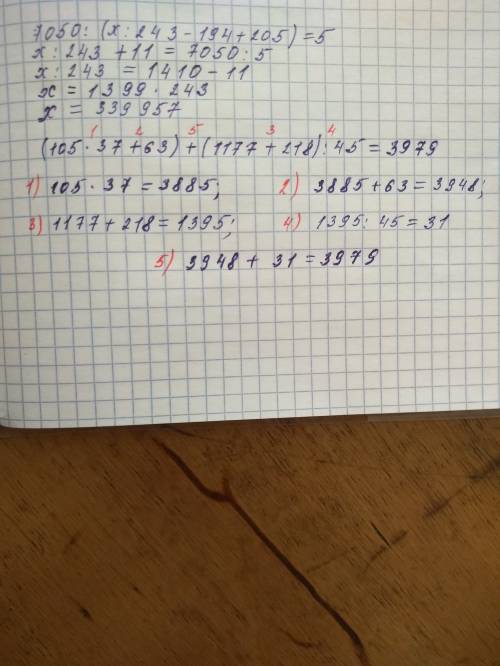 7050: (x: 243-194+205) =5
x: 243 +11 = 7050:5
x: 243 = 1410-11
x = 1399·243
x = 339957
1 2 5 3 4
(105·37+63)+(1177+218):45=3979
1) 105·37=3885; 2) 3885+63=3948;
3) 1177+218=1395; 4) 1395:45=31
5) 3948+31=3979